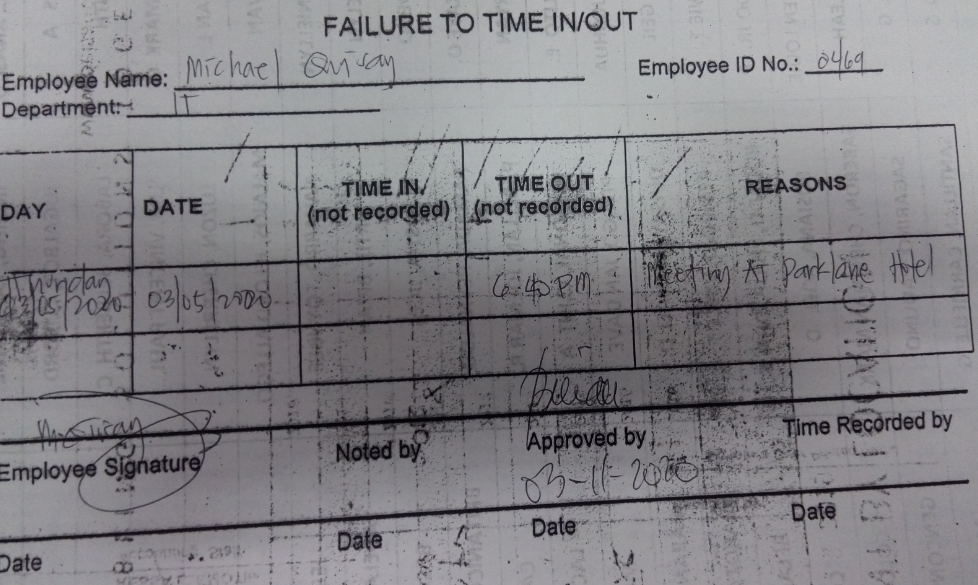 FAILURE TO TIME IN/OUT
Employee Name: Michael Quisay
Employee ID No.: 0469
Department: IT
DAY DATE TIME IN (not recorded) TIME OUT (not recorded) REASONS
Thursday
03/05/2020 03/05/2020 6:40 PM Meeting At Parklane Hotel
Employee Signature Noted by Approved by Time Recorded by
03-11-2020
Date Date Date Date